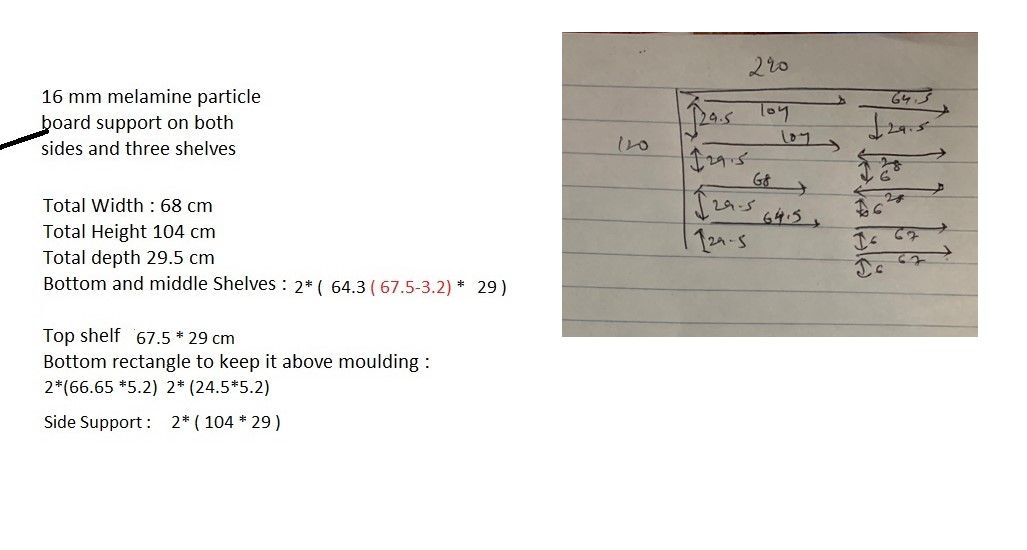 16 mm melamine particle
board support on both
sides and three shelves
Total Width : 68 cm
Total Height 104 cm
Total depth 29.5 cm
Bottom and middle Shelves : 2* ( 64.3 ( 67.5-3.2) * 29 )
Top shelf 67.5 * 29 cm
Bottom rectangle to keep it above moulding :
2*(66.65 *5.2) 2* (24.5*5.2)
Side Support : 2* ( 104 * 29 )
220
120
29.5 104 64.5
107 29.5
29.5
68 28
6
29.5 64.5 6 28
29.5 6 67
6 67